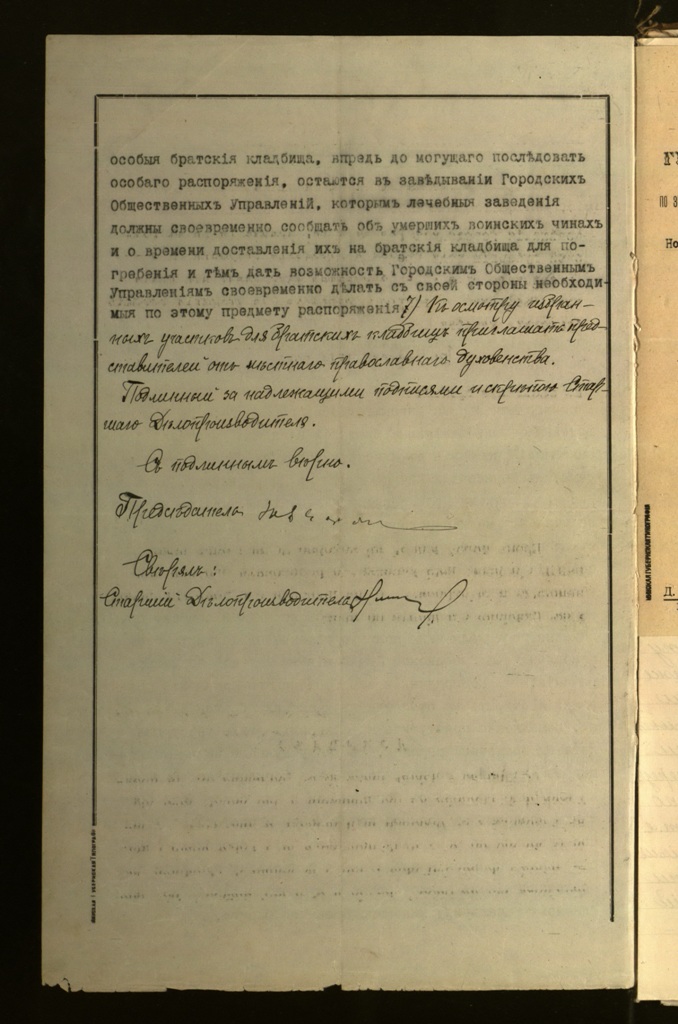 особыя братскія кладбища, впредь до могущаго послѣдовать
особаго распоряженія, остаются въ завѣдываніи Городскихъ
Общественныхъ Управленій, которымъ лечебныя заведенія
должны своевременно сообщать объ умершихъ воинскихъ чинахъ
и о времени доставленія ихъ на братскія кладбища для по-
гребенія и тѣмъ дать возможность Городскимъ Общественнымъ
Управленіямъ своевременно дѣлать съ своей стороны необходи-
мыя по этому предмету распоряженія 7) Къ осмотру избран-
ныхъ участковъ для братскихъ кладбищъ приглашать пред-
ставителей отъ мѣстнаго православнаго духовенства.
Подлинный за надлежащими подписями и скрѣпою Стар-
шаго Дѣлопроизводителя.
Съ подлиннымъ вѣрно.
Предсѣдатель
Свѣрялъ:
Старшій Дѣлопроизводитель
МИНСКАЯ ГУБЕРНСКАЯ ТИПОГРАФІЯ
МИНСКАЯ ГУБЕРНСКАЯ ТИПОГРАФІЯ
ПО
Но
Д.